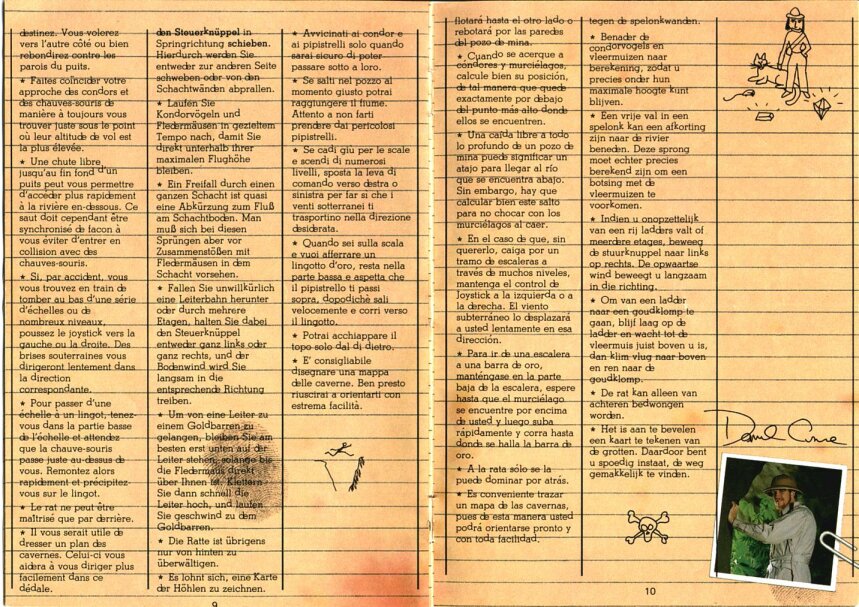 destinez. Vous volerez
vers l'autre côté ou bien
rebondirez contre les
parois du puits.
★ Faites coïncider votre
approche des condors et
des chauves-souris de
manière à toujours vous
trouver juste sous le point
où leur altitude de vol est
la plus élevée.
★ Une chute libre
jusqu'au fin fond d'un
puits peut vous permettre
d'accéder plus rapidement
à la rivière en-dessous. Ce
saut doit cependant être
synchronisé de facon à
vous éviter d'entrer en
collision avec des
chauves-souris.
★ Si, par accident, vous
vous trouvez en train de
tomber au bas d'une série
d'échelles ou de
nombreux niveaux,
poussez le joystick vers la
gauche ou la droite. Des
brises souterraines vous
dirigeront lentement dans
la direction
correspondante.
★ Pour passer d'une
échelle à un lingot, tenez-
vous dans la partie basse
de l'échelle et attendez
que la chauve-souris
passe juste au-dessus de
vous. Remontez alors
rapidement et précipitez-
vous sur le lingot.
★ Le rat ne peut être
maîtrisé que par derrière.
★ Il vous serait utile de
dresser un plan des
cavernes. Celui-ci vous
aidera à vous diriger plus
facilement dans ce
dédale.
den Steuerknüppel in
Springrichtung schieben.
Hierdurch werden Sie
entweder zur anderen Seite
schweben oder von den
Schachtwänden abprallen.
★ Laufen Sie
Kondorvögeln und
Fledermäusen in gezieltem
Tempo nach, damit Sie
direkt unterhalb ihrer
maximalen Flughöhe
bleiben.
★ Ein Freifall durch einen
ganzen Schacht ist quasi
eine Abkürzung zum Fluß
am Schachtboden. Man
muß sich bei diesen
Sprüngen aber vor
Zusammenstößen mit
Fledermäusen in dem
Schacht vorsehen.
★ Fallen Sie unwillkürlich
eine Leiterbahn herunter
oder durch mehrere
Etagen, halten Sie dabei
den Steuerknüppel
entweder ganz links oder
ganz rechts, und der
Bodenwind wird Sie
langsam in die
entsprechende Richtung
treiben.
★ Um von eine Leiter zu
einem Goldbarren zu
gelangen, bleiben Sie am
besten erst unten auf der
Leiter stehen, solange bis
die Fledermaus direkt
über Ihnen ist. Klettern
Sie dann schnell die
Leiter hoch, und laufen
Sie geschwind zu dem
Goldbarren.
★ Die Ratte ist übrigens
nur von hinten zu
überwältigen.
★ Es lohnt sich, eine Karte
der Höhlen zu zeichnen.
★ Avvicinati ai condor e
ai pipistrelli solo quando
sarai sicuro di poter
passare sotto a loro.
★ Se salti nel pozzo al
momento giusto potrai
raggiungere il fiume.
Attento a non farti
prendere dai pericolosi
pipistrelli.
★ Se cadi giù per le scale
e scendi di numerosi
livelli, sposta la leva di
comando verso destra o
sinistra per far sì che i
venti sotterranei ti
trasportino nella direzione
desiderata.
★ Quando sei sulla scala
e vuoi afferrare un
lingotto d'oro, resta nella
parte bassa e aspetta che
il pipistrello ti passi
sopra, dopodiché sali
velocemente e corri verso
il lingotto.
★ Potrai acchiappare il
topo solo dal di dietro.
★ E' consigliabile
disegnare una mappa
delle caverne. Ben presto
riuscirai a orientarti con
estrema facilità.
9
flotará hasta el otro lado o
rebotará por las paredes
del pozo de mina.
★ Cuando se acerque a
cóndores y murciélagos,
calcule bien su posición,
de tal manera que quede
exactamente por debajo
del punto más alto donde
ellos se encuentren.
★ Una caída libre a todo
lo profundo de un pozo de
mina puede significar un
atajo para llegar al río
que se encuentra abajo.
Sin embargo, hay que
calcular bien este salto
para no chocar con los
murciélagos al caer.
★ En el caso de que, sin
quererlo, caiga por un
tramo de escaleras a
través de muchos niveles,
mantenga el control de
Joystick a la izquierda o a
la derecha. El viento
subterráneo lo desplazará
a usted lentamente en esa
dirección.
★ Para ir de una escalera
a una barra de oro,
manténgase en la parte
baja de la escalera, espere
hasta que el murciélago
se encuentre por encima
de usted y luego suba
rápidamente y corra hasta
donde se halla la barra de
oro.
★ A la rata sólo se la
puede dominar por atrás.
★ Es conveniente trazar
un mapa de las cavernas,
pues de esta manera usted
podrá orientarse pronto y
con toda facilidad.
tegen de spelonkwanden.
★ Benader de
condorvogels en
vleermuizen naar
berekening, zodat u
precies onder hun
maximale hoogte kunt
blijven.
★ Een vrije val in een
spelonk kan een afkorting
zijn naar de rivier
beneden. Deze sprong
moet echter precies
berekend zijn om een
botsing met de
vleermuizen te
voorkomen.
★ Indien u onopzettelijk
van een rij ladders valt of
meerdere etages, beweeg
de stuurknuppel naar links
op rechts. De opwaartse
wind beweegt u langzaam
in die richting.
★ Om van een ladder
naar een goudklomp te
gaan, blijf laag op de
ladder en wacht tot de
vleermuis juist boven u is,
dan klim vlug naar boven
en ren naar de
goudklomp.
★ De rat kan alleen van
achteren bedwongen
worden.
★ Het is aan te bevelen
een kaart te tekenen van
de grotten. Daardoor bent
u spoedig instaat, de weg
gemakkelijk te vinden.
10